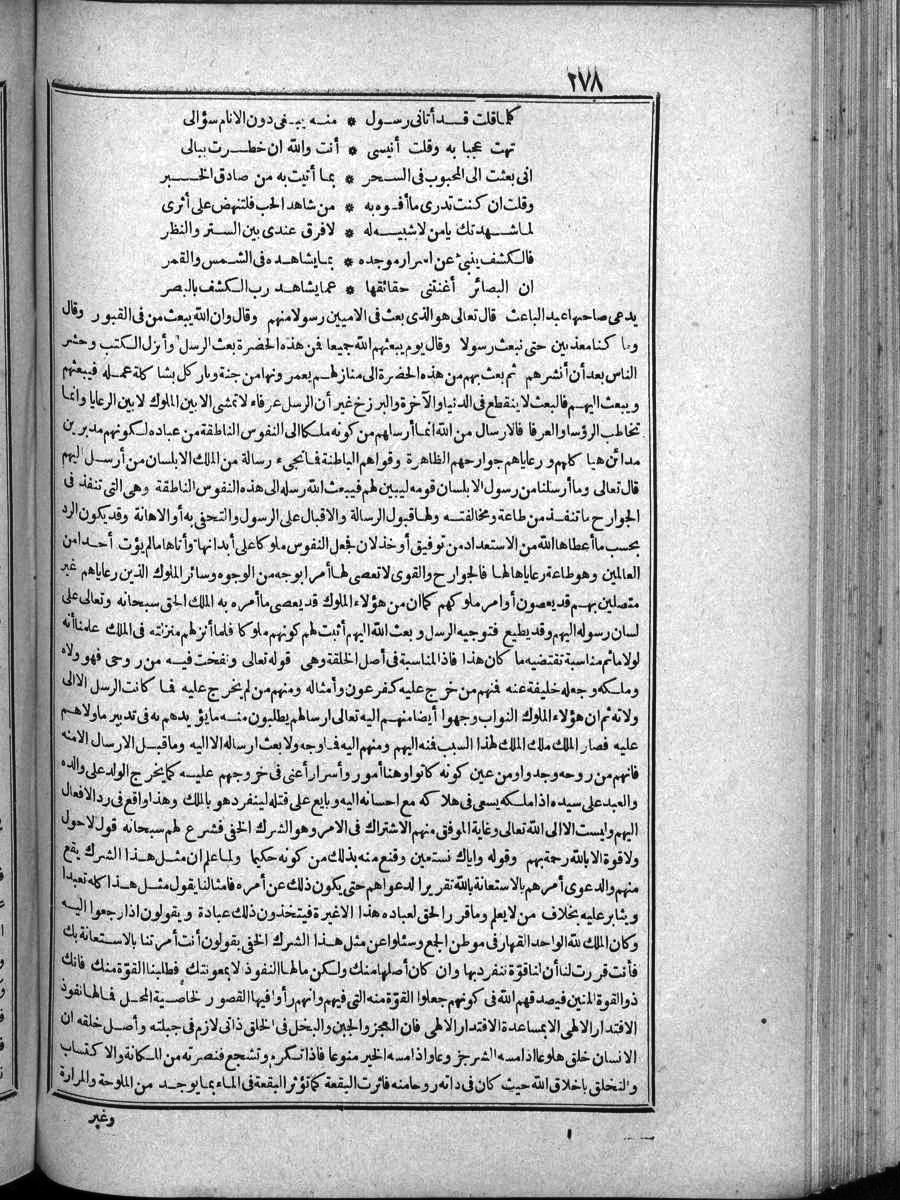 ٢٧٨
كلما قلت قد أتانى رسول * منه يبغى دون الانام سؤالى
تهت عجبا به وقلت أنيسى * أنت والله ان خطرت ببالى
انى بعثت الى المحبوب فى السحر * بما أتيت به من صادق الخبر
وقلت ان كنت تدرى ما أفوه به * من شاهد الحب فلتنهض على أثرى
لما شهدتك يا من لا شبيه له * لا فرق عندى بين الستر والنظر
فالكشف ينبئ عن اسرار موجده * بما يشاهده فى الشمس والقمر
ان البصائر أغنتنى حقائقها * عما يشاهد رب الكشف بالبصر
يدعى صاحبها عبد الباعث قال تعالى هو الذى بعث فى الاميين رسولا منهم وقال وان الله يبعث من فى القبور وقال
وما كنا معذبين حتى نبعث رسولا وقال يوم يبعثهم الله جميعا فمن هذه الحضرة بعث الرسل وأنزل الكتب وحشر
الناس بعد أن أنشرهم ثم بعث بهم من هذه الحضرة الى منازلهم يعمرونها من جنة ونار كل بشاكلة عمله فيبعثهم
ويبعث اليهم فالبعث لا ينقطع فى الدنيا والآخرة والبرزخ غير أن الرسل عرفاء لا تمشى الا بين الملوك لا بين الرعايا وانما
تخاطب الرؤسا والعرفا فالارسال من الله انما أرسلهم من كونه ملكا الى النفوس الناطقة من عباده لكونهم مدبرين
مدائن هياكلهم ورعاياهم جوارحهم الظاهرة وقواهم الباطنة فما تجىء رسالة من الملك الا بلسان من أرسل اليهم
قال تعالى وما أرسلنا من رسول الا بلسان قومه ليبين لهم فيبعث الله رسله الى هذه النفوس الناطقة وهى التى تنفذ فى
الجوارح ما تنفذ من طاعة ومخالفته ولها قبول الرسالة والاقبال على الرسول والتحفى به أو الاهانة وقد يكون الرد
بحسب ما أعطاها الله من الاستعداد من توفيق أو خذلان فجعل النفوس ملوكا على أبدانها وآتاها ما لم يؤت أحدا من
العالمين وهو طاعة رعاياها لها فالجوارح والقوى لا تعصى لها أمرا بوجه من الوجوه وسائر الملوك الذين رعاياهم غير
متصلين بهم قد يعصون أوامر ملوكهم كما ان من هؤلاء الملوك قد يعصى ما أمره به الملك الحق سبحانه وتعالى على
لسان رسوله اليهم وقد يطيع فتوجيه الرسل وبعث الله اليهم أثبت لهم كونهم ملوكا فلما أنزلهم منزلته فى الملك علمنا أنه
لولا ما ثم مناسبة تقتضيه ما كان هذا فاذا المناسبة فى أصل الخلقة وهى قوله تعالى ونفخت فيه من روحى فهو ولاه
وملكه وجعله خليفة عنه فمنهم من خرج عليه كفرعون وأمثاله ومنهم من لم يخرج عليه فما كانت الرسل الا الى
ولاته ثم ان هؤلاء الملوك النواب وجهوا أيضا منهم اليه تعالى ارسالهم يطلبون منه ما يؤيدهم به فى تدبير ما ولاهم
عليه فصار الملك ملك الملك لهذا السبب فمنه اليهم ومنهم اليه فما وجه ولا بعث ارساله الا اليه وما قبل الارسال الا منه
فانهم من روحه وجدوا ومن عين كونه كانوا وهنا أمور وأسرار أعنى فى خروجهم عليه كما يخرج الولد على والده
والعبد على سيده اذا ملكه يسعى فى هلاكه مع احسانه اليه ويبايع على قتله لينفرد هو بالملك وهذا واقع فى رد الافعال
اليهم وليست الا الى الله تعالى وغاية الموفق منهم الاشتراك فى الامر وهو الشرك الخفى فشرع لهم سبحانه قول لا حول
ولا قوة الا بالله رحمة بهم وقوله واياك نستعين وقنع منه بذلك من كونه حكيما ولما علم ان مثل هذا الشرك يقع
منهم والدعوى أمرهم بالاستعانة بالله تقريرا لدعواهم حتى يكون ذلك عن أمره فامثالنا يقول مثل هذا كله تعبدا
ويثابر عليه بخلاف من لا يعلم وما قرر الحق لعباده هذا الا غيرة فيتخذون ذلك عبادة ويقولون اذا رجعوا اليه
وكان الملك لله الواحد القهار فى موطن الجمع وسئلوا عن مثل هذا الشرك الخفى يقولون أنت أمرتنا بالاستعانة بك
فأنت قررت لنا أن لنا قوة ننفرد بها وان كان أصلها منك ولكن ما لها النفوذ لا بمعونتك فطلبنا القوة منك فانك
ذو القوة المتين فيصدقهم الله فى كونهم جعلوا القوة منه التى فيهم وانهم رأوا فيها القصور لخاصية المحل فما لها نفوذ
الاقتدار الالهى الا بمساعدة الاقتدار الالهى فان العجز والجبن والبخل فى الخلق ذاتى لازم فى جبلته وأصل خلقه ان
الانسان خلق هلوعا اذا مسه الشر جزوعا واذا مسه الخير منوعا فاذا تكرم وتشجع فنصرته من المكانة والاكتساب
والتخلق باخلاق الله حيث كان فى ذاته روحا منه فاثرت البقعة كما تؤثر البقعة فى الماء بما يوجد من الملوحة والمرارة
وغير